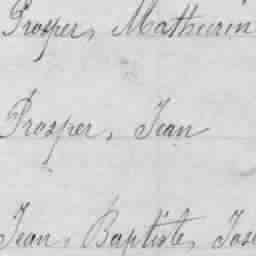 Prosper, Mathurin
Prosper, Jean
Jean, Baptiste, Jose